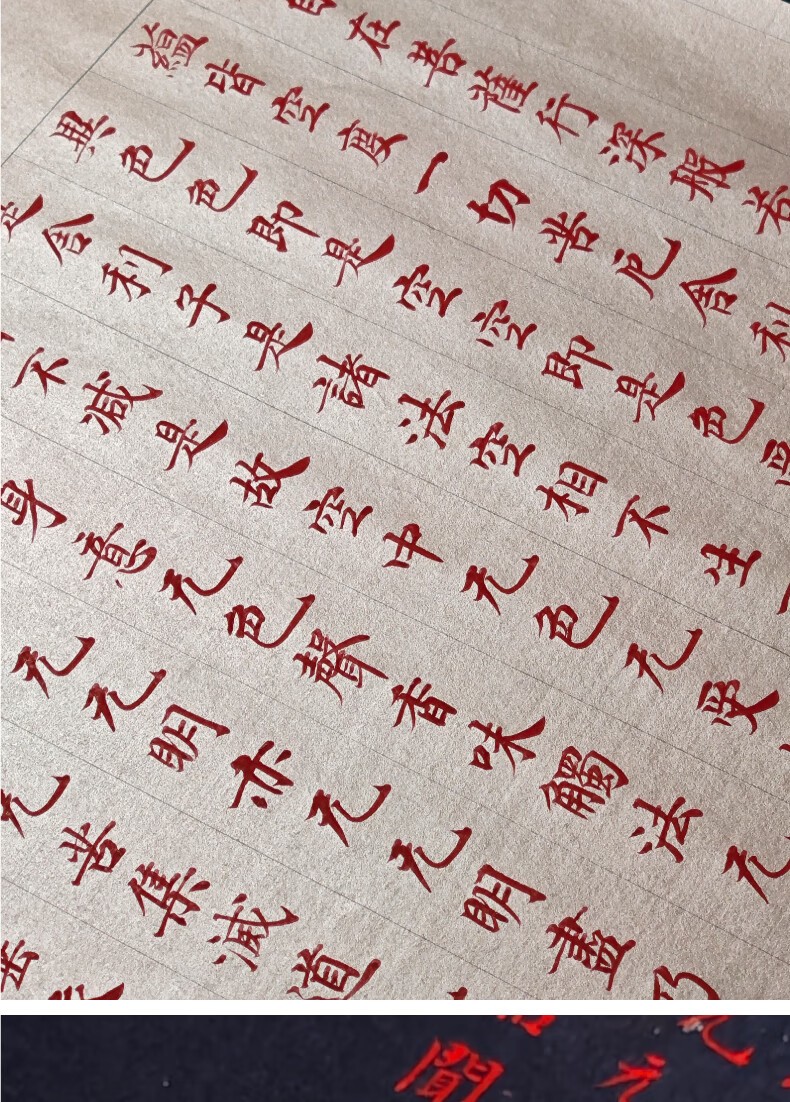 在菩薩行深般若
蘊皆空度一切苦厄舍利
異色色即是空空即是色受
是舍利子是諸法空相不生
不减是故空中无色无受
身意无色聲香味觸法无
无无明亦无无明盡乃
无苦集滅道
聞